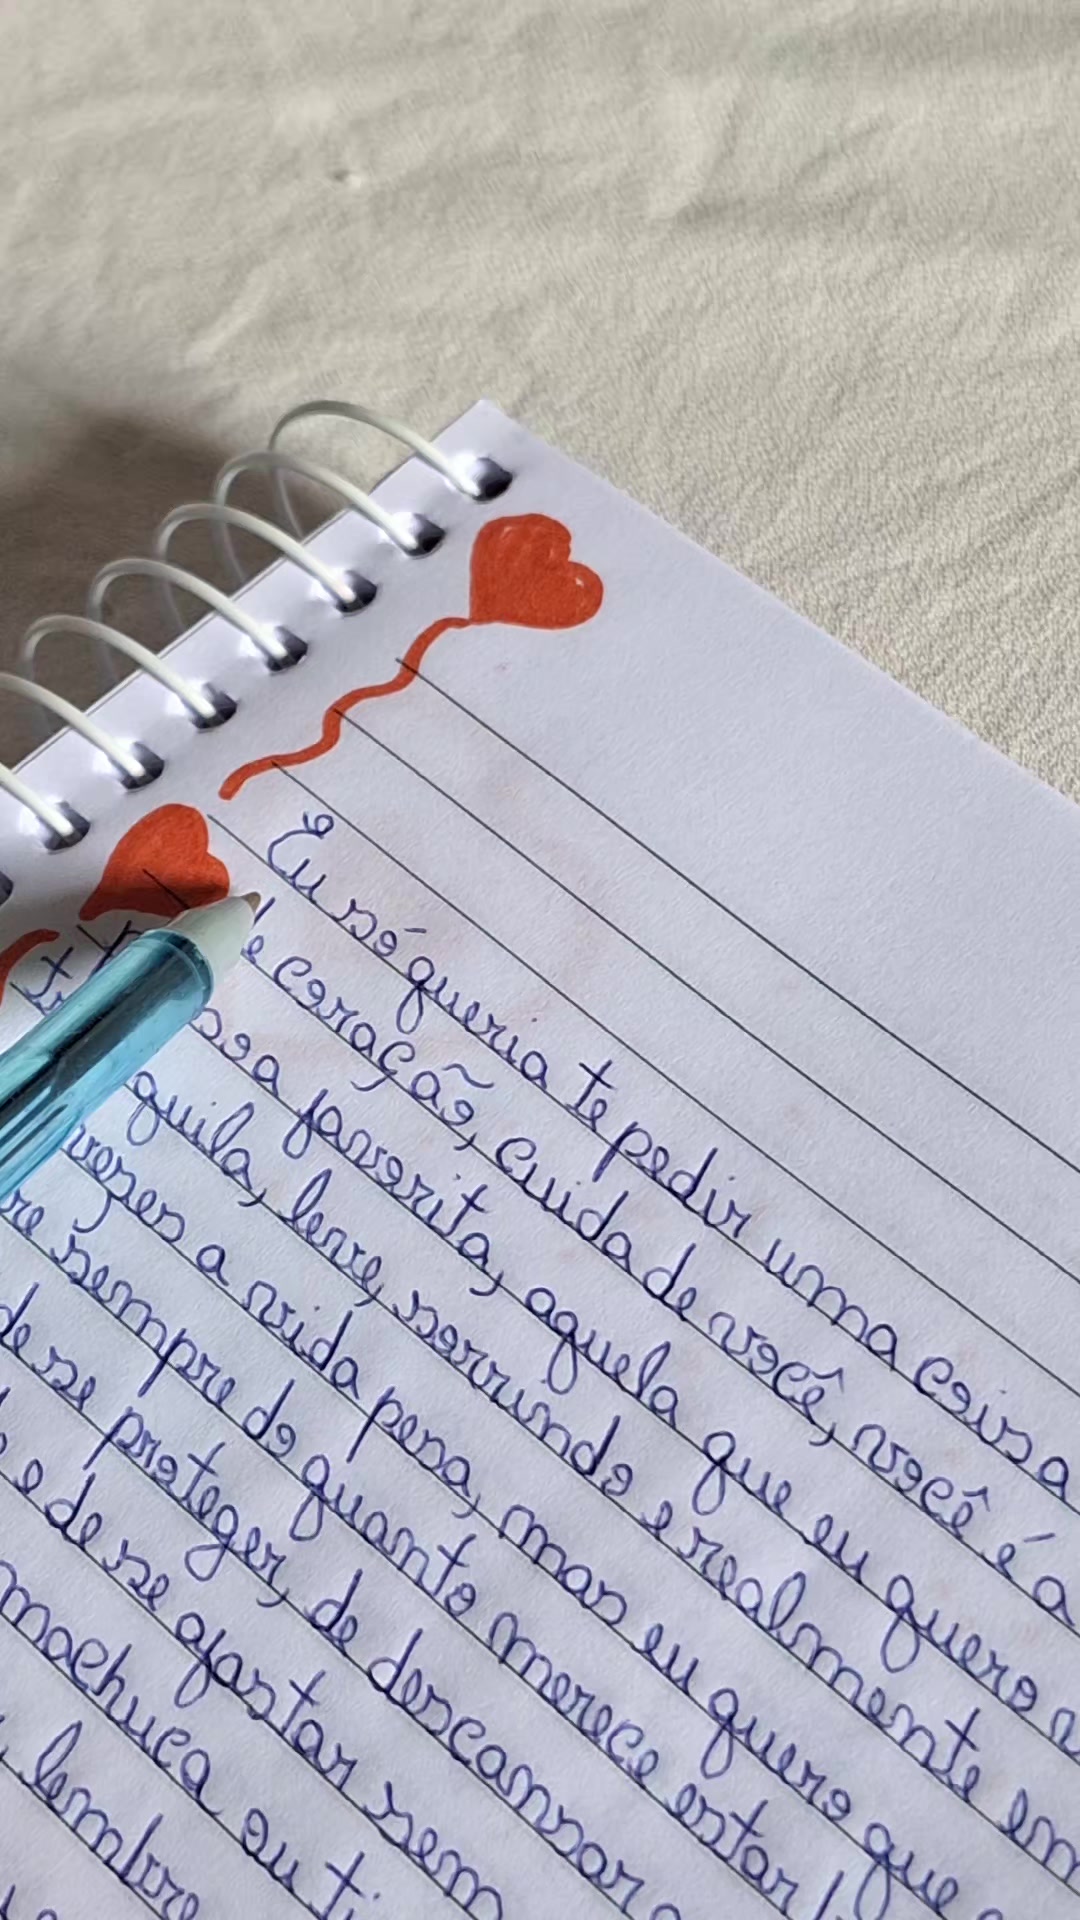 Eu só queria te pedir uma coisa
de coração, cuida de você, você é a
pessoa favorita, aquela que eu quero
tranquila, leve, sorrindo e realmente em
vezes a vida pesa, mas eu quero que
sempre do quanto merece estar
de se proteger, de descansar
e de se afastar sem
machuca ou
lembre